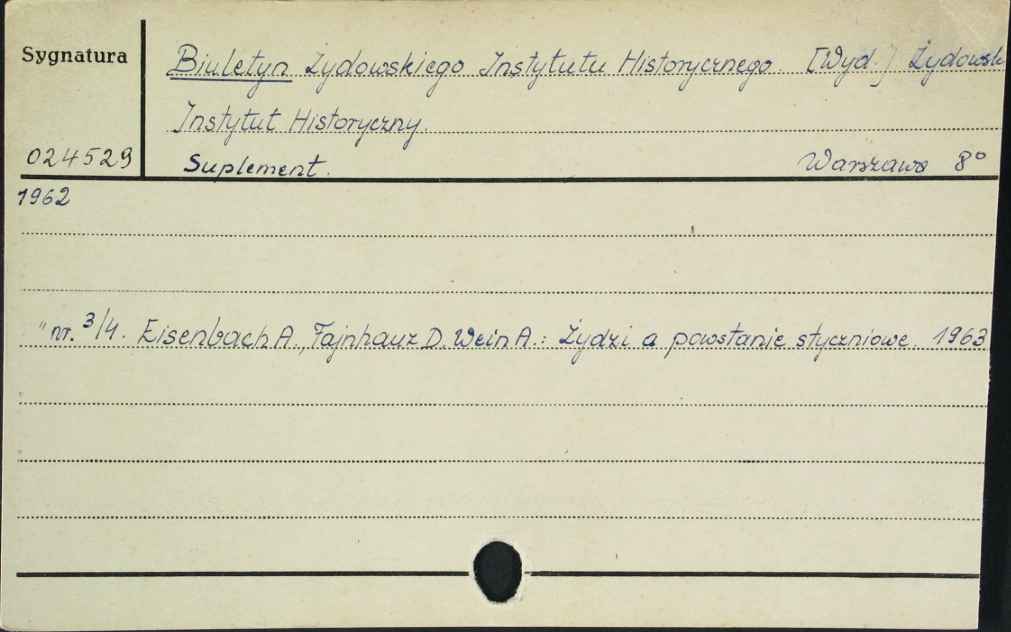 Sygnatura
Biuletyn Żydowskiego Instytutu Historycznego. [Wyd.] Żydowsk
Instytut Historyczny.
024529
Suplement. Warszawa 8°
1962
" nr. 3/4. Eisenbach A., Fajnhauz D. Wein A.: Żydzi a powstanie styczniowe. 1963